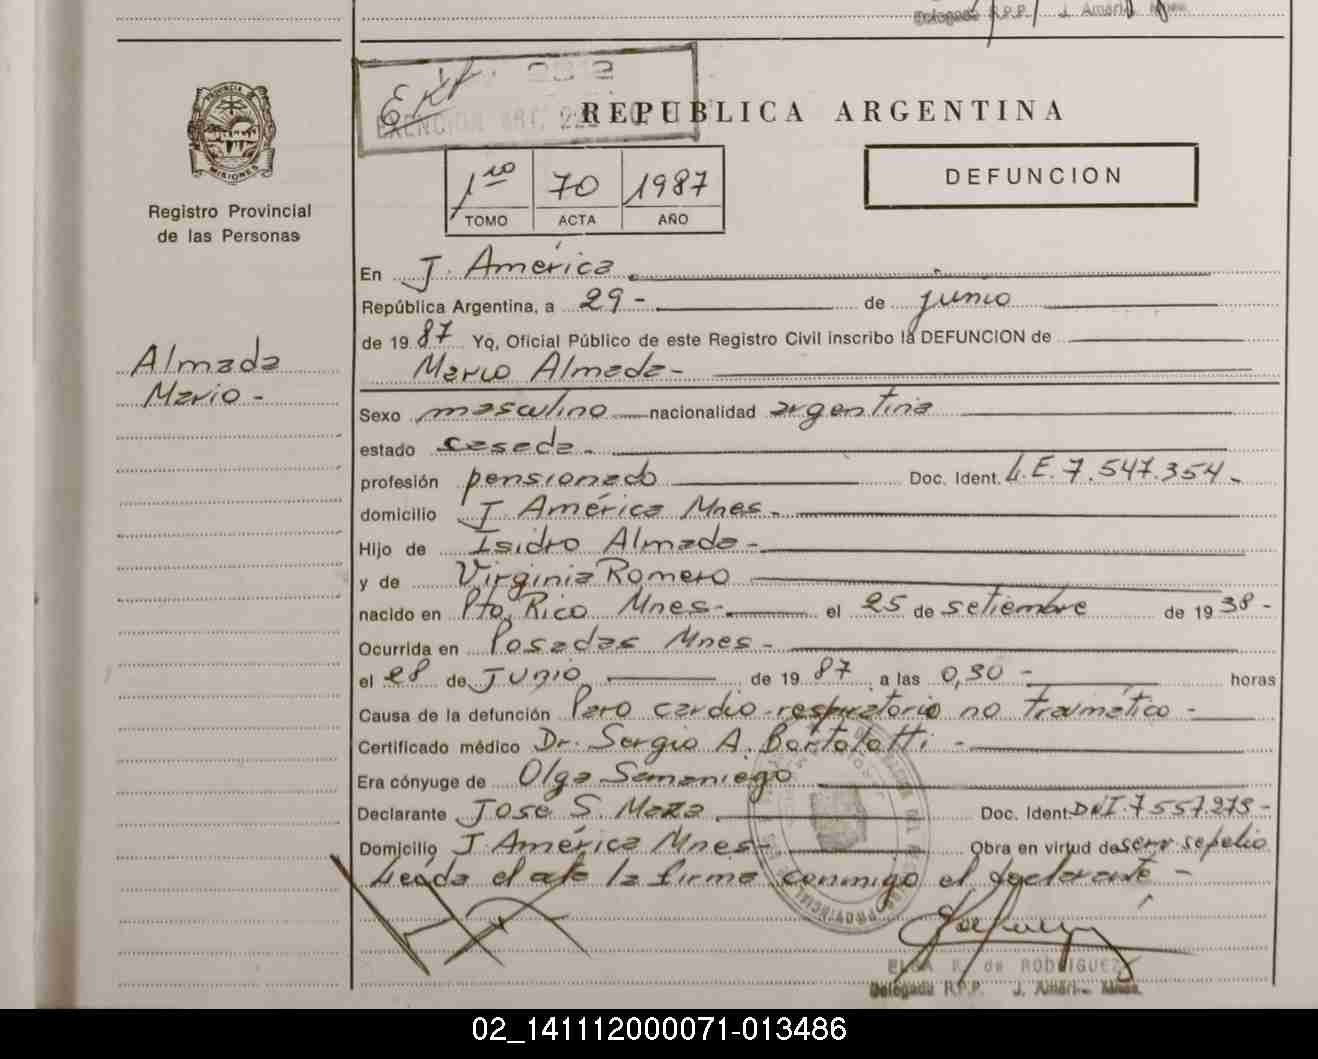 Delegada R.P.P. J. América Mnes
PROVINCIA DE
MISIONES
Registro Provincial
de las Personas
Almada
Mario -
EXENCION ART. 222
REPUBLICA ARGENTINA
DEFUNCION
1ro 70 1987
TOMO ACTA AÑO
En J. América
República Argentina, a 29 - de junio
de 1987 Yo, Oficial Público de este Registro Civil inscribo la DEFUNCION de
Mario Almada -
Sexo masculino nacionalidad argentina
estado casada -
profesión pensionado Doc. Ident. L.E. 7.547.354 -
domicilio J. América Mnes -
Hijo de Isidro Almada -
y de Virginia Romero
nacido en Pto. Rico Mnes - el 25 de setiembre de 1938 -
Ocurrida en Posadas Mnes -
el 28 de Junio de 1987 a las 0,30 - horas
Causa de la defunción Paro cardio-respiratorio no traumático -
Certificado médico Dr. Sergio A. Bortolotti -
Era cónyuge de Olga Samaniego
Declarante Jose S. Maza Doc. Ident. DNI. 7557.273 -
Domicilio J. América Mnes - Obra en virtud de serv. sepelio
Leída el acta la firma conmigo el declarante -
ELSA F. de RODRIGUEZ
Delegada R.P.P. J. América Mnes.
02_141112000071-013486